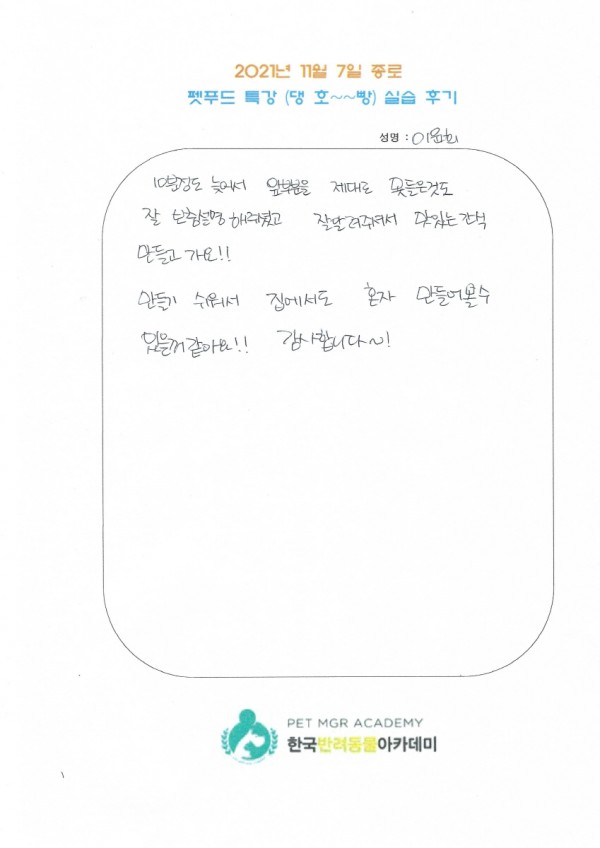 2021년 11월 7일 종로
펫푸드 특강 (댕 호~~빵) 실습 후기
성명 :
10분정도 늦어서 앞부분을 제대로 못들은것도
잘 보충설명 해주셨고 잘알려주셔서 맛있는간식
만들고 가요!!
만들기 쉬워서 집에서도 혼자 만들어볼수
있을거같아요!! 감사합니다~!
PET MGR ACADEMY
한국반려동물아카데미